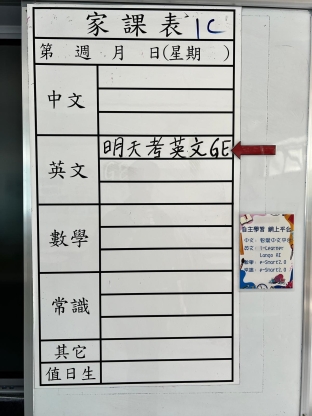 家課表 1C
第 週 月 日(星期 )
中文
英文 明天考英文GE
數學
常識
其它
值日生
自主學習 網上平台
i-Learner
Longo AI
e-Smart2.0
e-Smart2.0